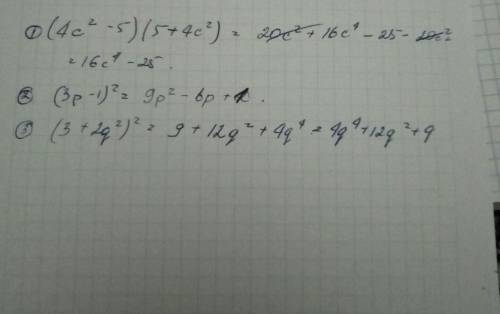 ① (4c² - 5)(5 + 4c²) = 20c² + 16c⁴ - 25 - 20c²
= 16c⁴ - 25.
② (3p - 1)² = 9p² - 6p + 1.
③ (3 + 2q²)² = 9 + 12q² + 4q⁴ = 4q⁴ + 12q² + 9